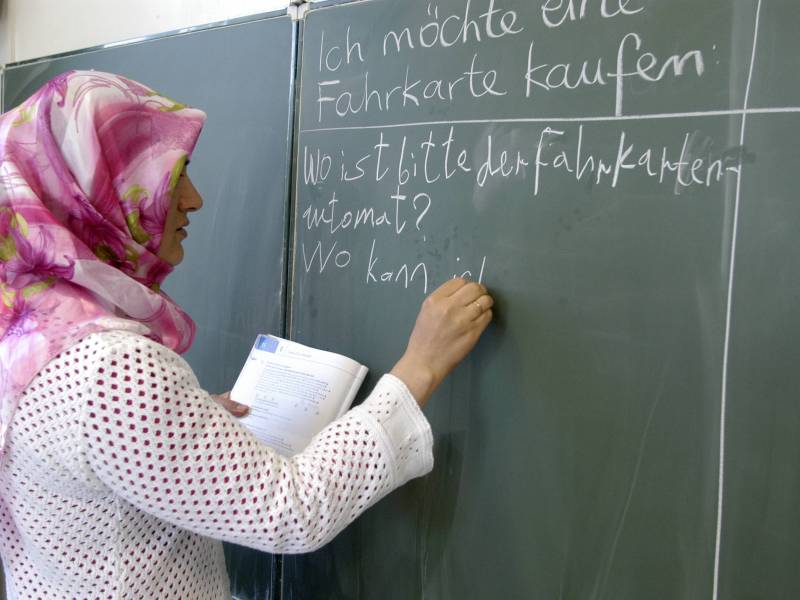 Ich möchte eine
Fahrkarte kaufen:
Wo ist bitte der Fahrkarten-
automat?
Wo kann ich